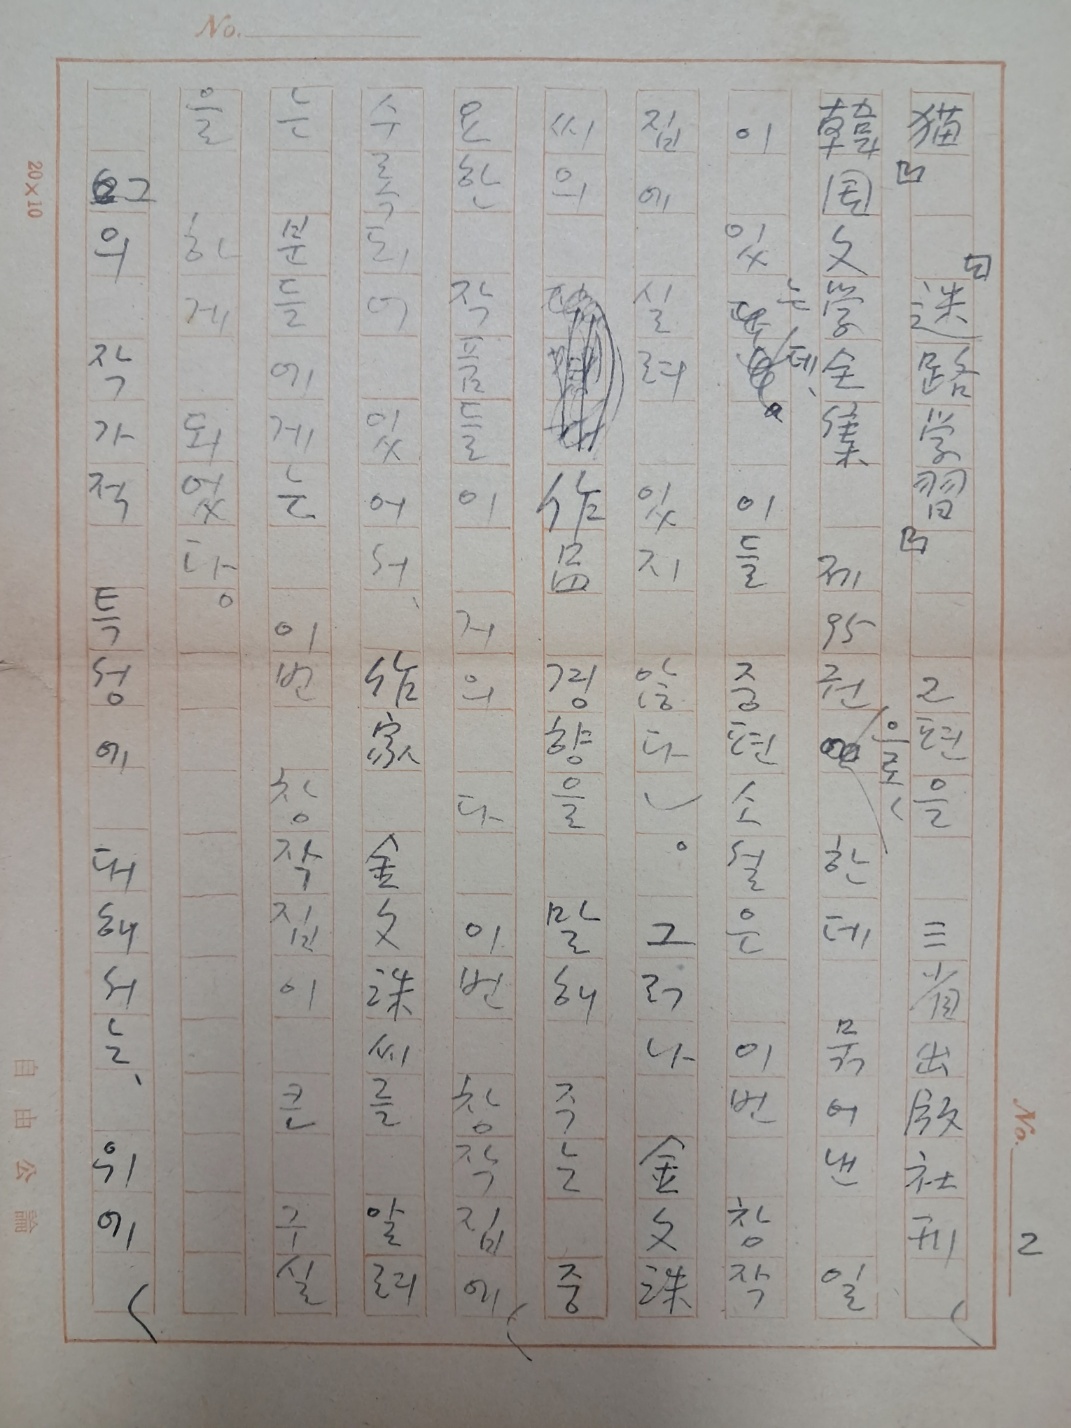 No.
No. 2
猫」 「迷路学習」 2편을 三省出版社刊
韓国文学全集 제95권으로 한데 묶어 낸 일
이 있는데, 이들 중편소설은 이번 창작
집에 실려 있지 않다. 그러나 金文洙
씨의 作品 경향을 말해 주는 중
요한 작품들이 거의 다 이번 창작집에
수록되어 있어서, 作家 金文洙씨를 알려
는 분들에게는 이번 창작집이 큰 구실
을 하게 되었다.
그의 작가적 특성에 대해서는, 위에
20×10
自由公論